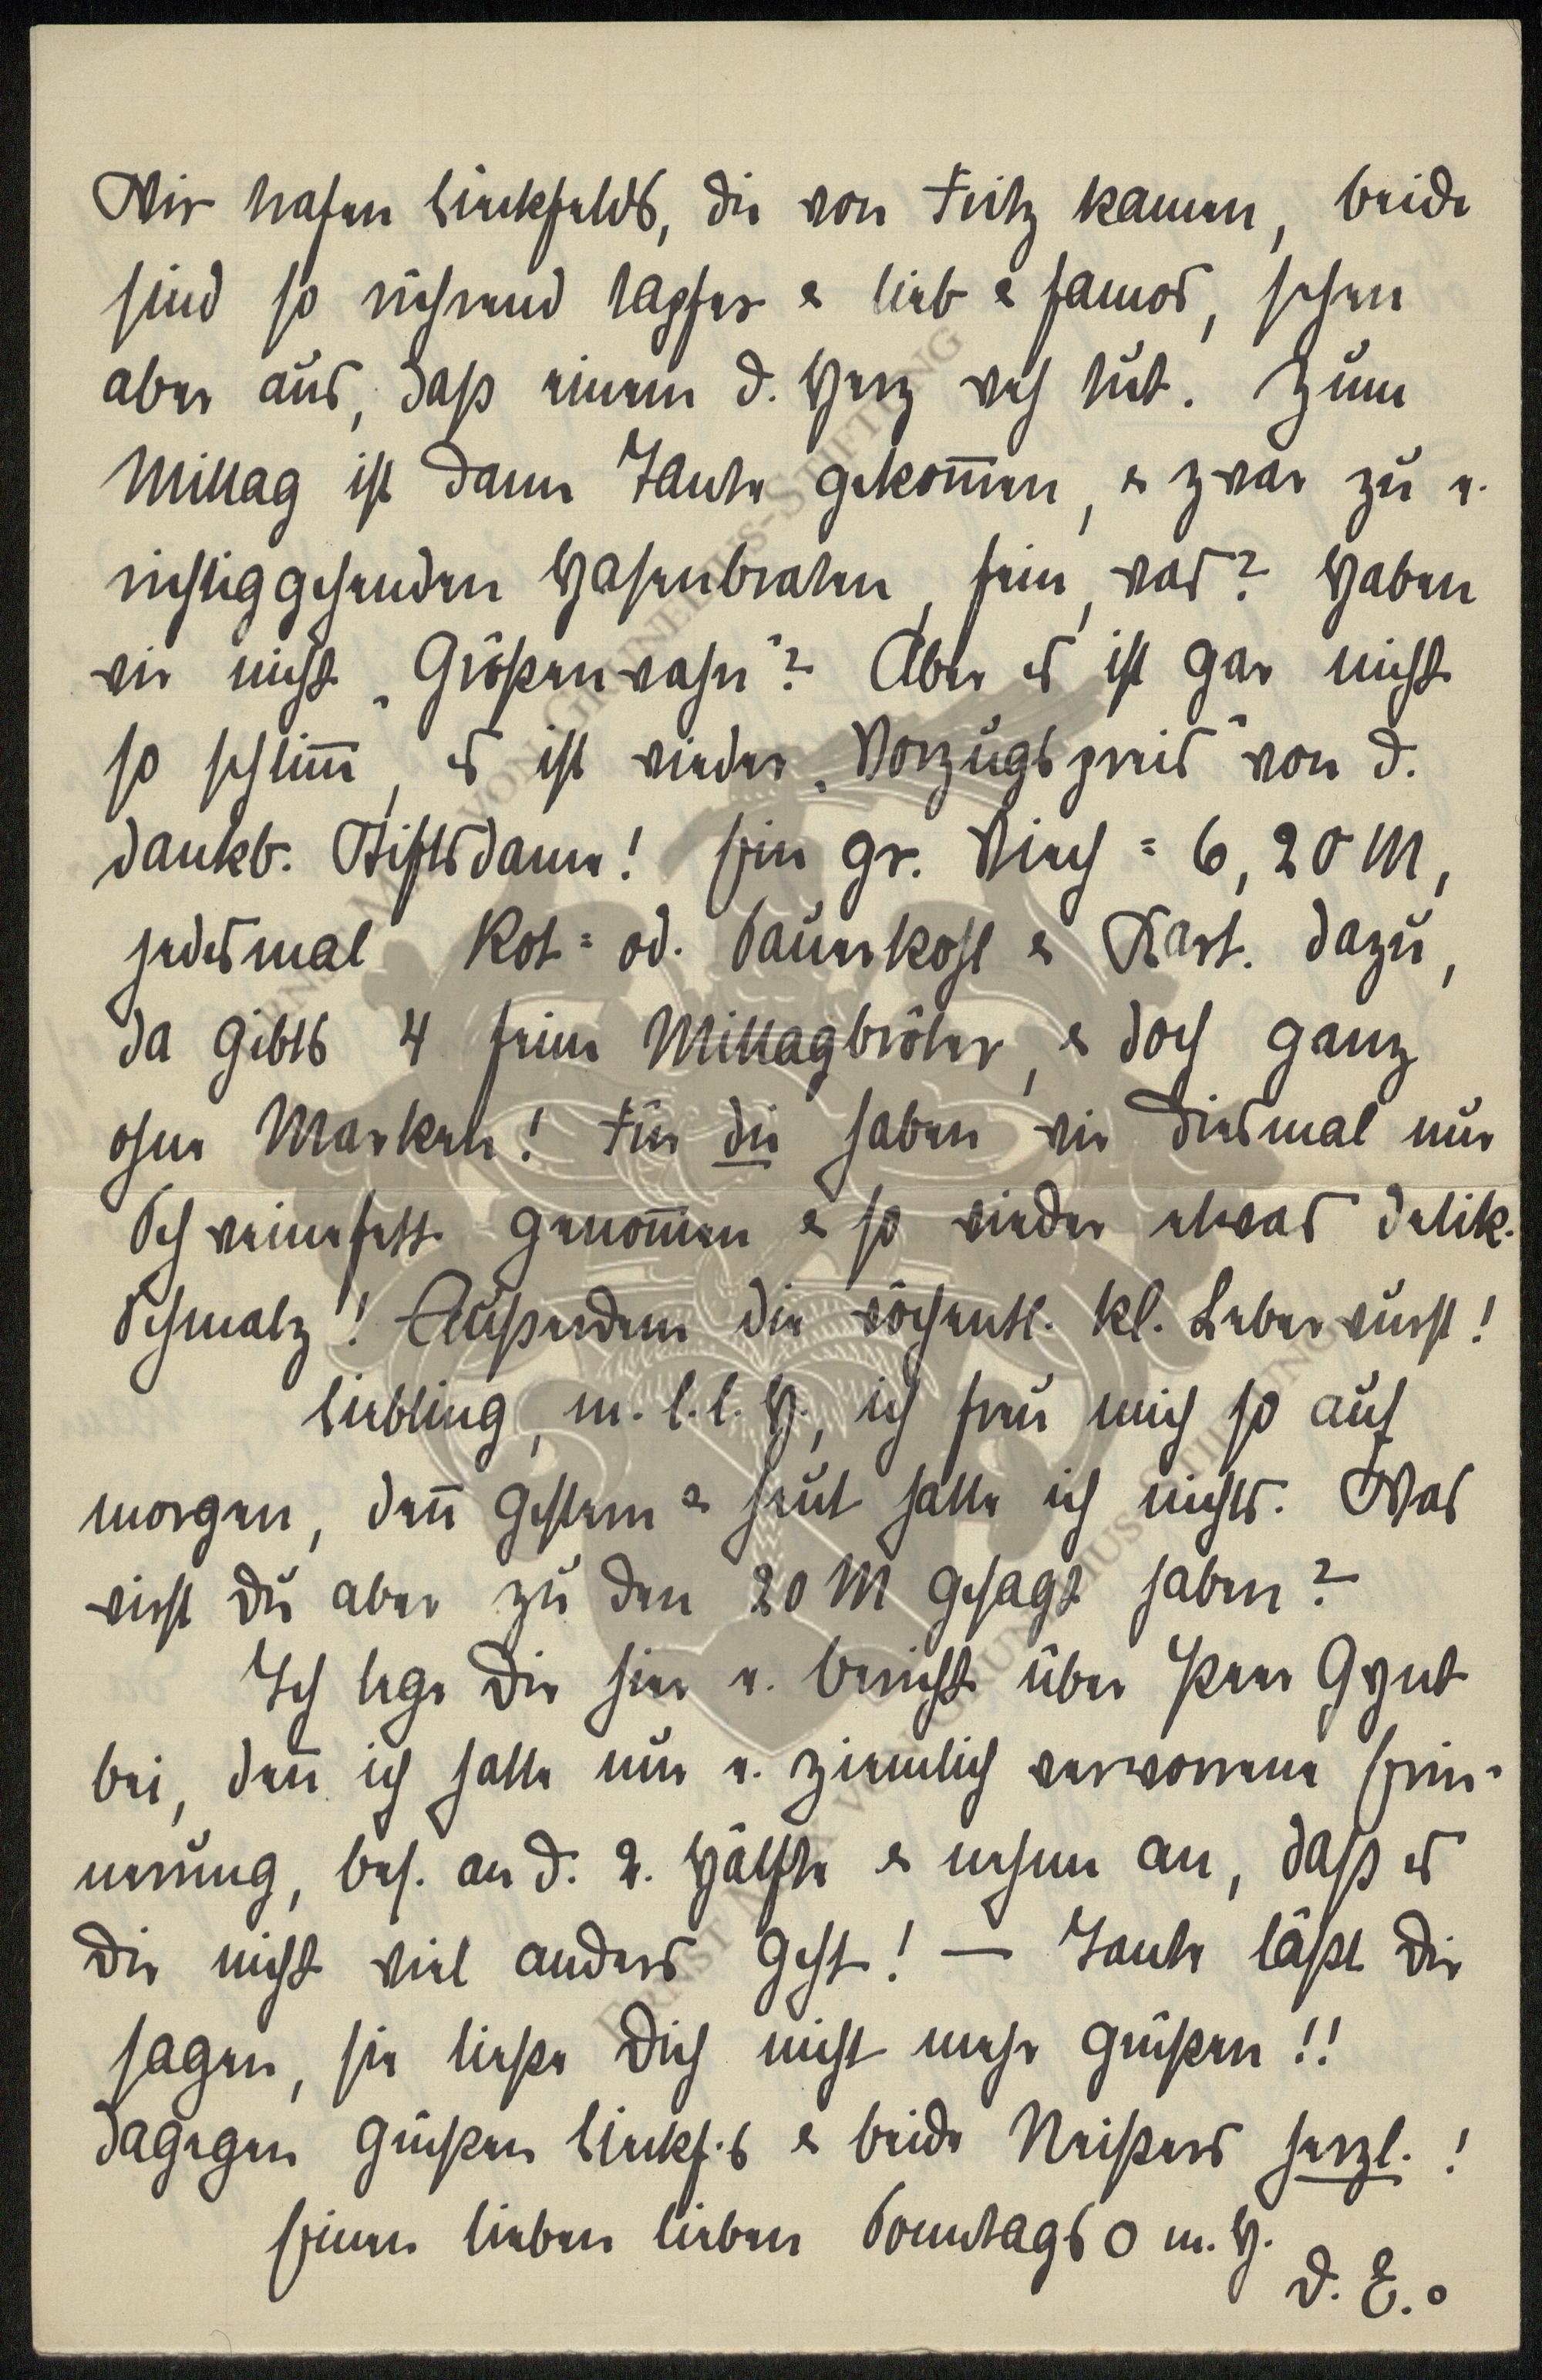 Wir trafen Linckfelds, die von Fritz kamen, beide
sind so rührend tapfer & lieb & famos, sehen
aber aus, daß einem d. Herz weh tut. Zum
Mittag ist dann Tante gekom̅en, & zwar zu e.
richtiggehenden Hasenbraten, fein, was? Haben
wir nicht „Größenwahn"? Aber es ist gar nicht
so schlim̅, es ist wieder „Vorzugspreis" von d.
dankb. Stiftsdame! Ein gr. Viech = 6,20 M,
jedesmal Rot= od. Sauerkohl & Kart. dazu,
da gibts 4 feine Mittagbröter, & doch ganz
ohne Marken! Für die haben wir diesmal nur
Schweinefett genom̅en & so wieder etwas delik.
Schmalz! Außerdem die wöchentl. kl. Leberwurst!
Liebling, m. l. l. H., ich freu mich so auf
morgen, den̅ gestern & heut hatte ich nichts. Was
wirst Du aber zu den 20 M gesagt haben?
Ich lege Dir hier e. Bericht über Peer Gynt
bei, den̅ ich hatte nur e. ziemlich verworrene Erin-
nerung, bes. an d. 2. Hälfte & nehme an, daß es
Dir nicht viel anders geht! — Tante läßt Dir
sagen, sie ließe Dich nicht mehr grüßen!!
Dagegen grüßen Linckf.s & beide Neißers herzl.!
Einen lieben lieben Sonntags O m. H.
D. E. o
ERNST MAX VON GRUNELIUS-STIFTUNG
ERNST MAX VON GRUNELIUS-STIFTUNG